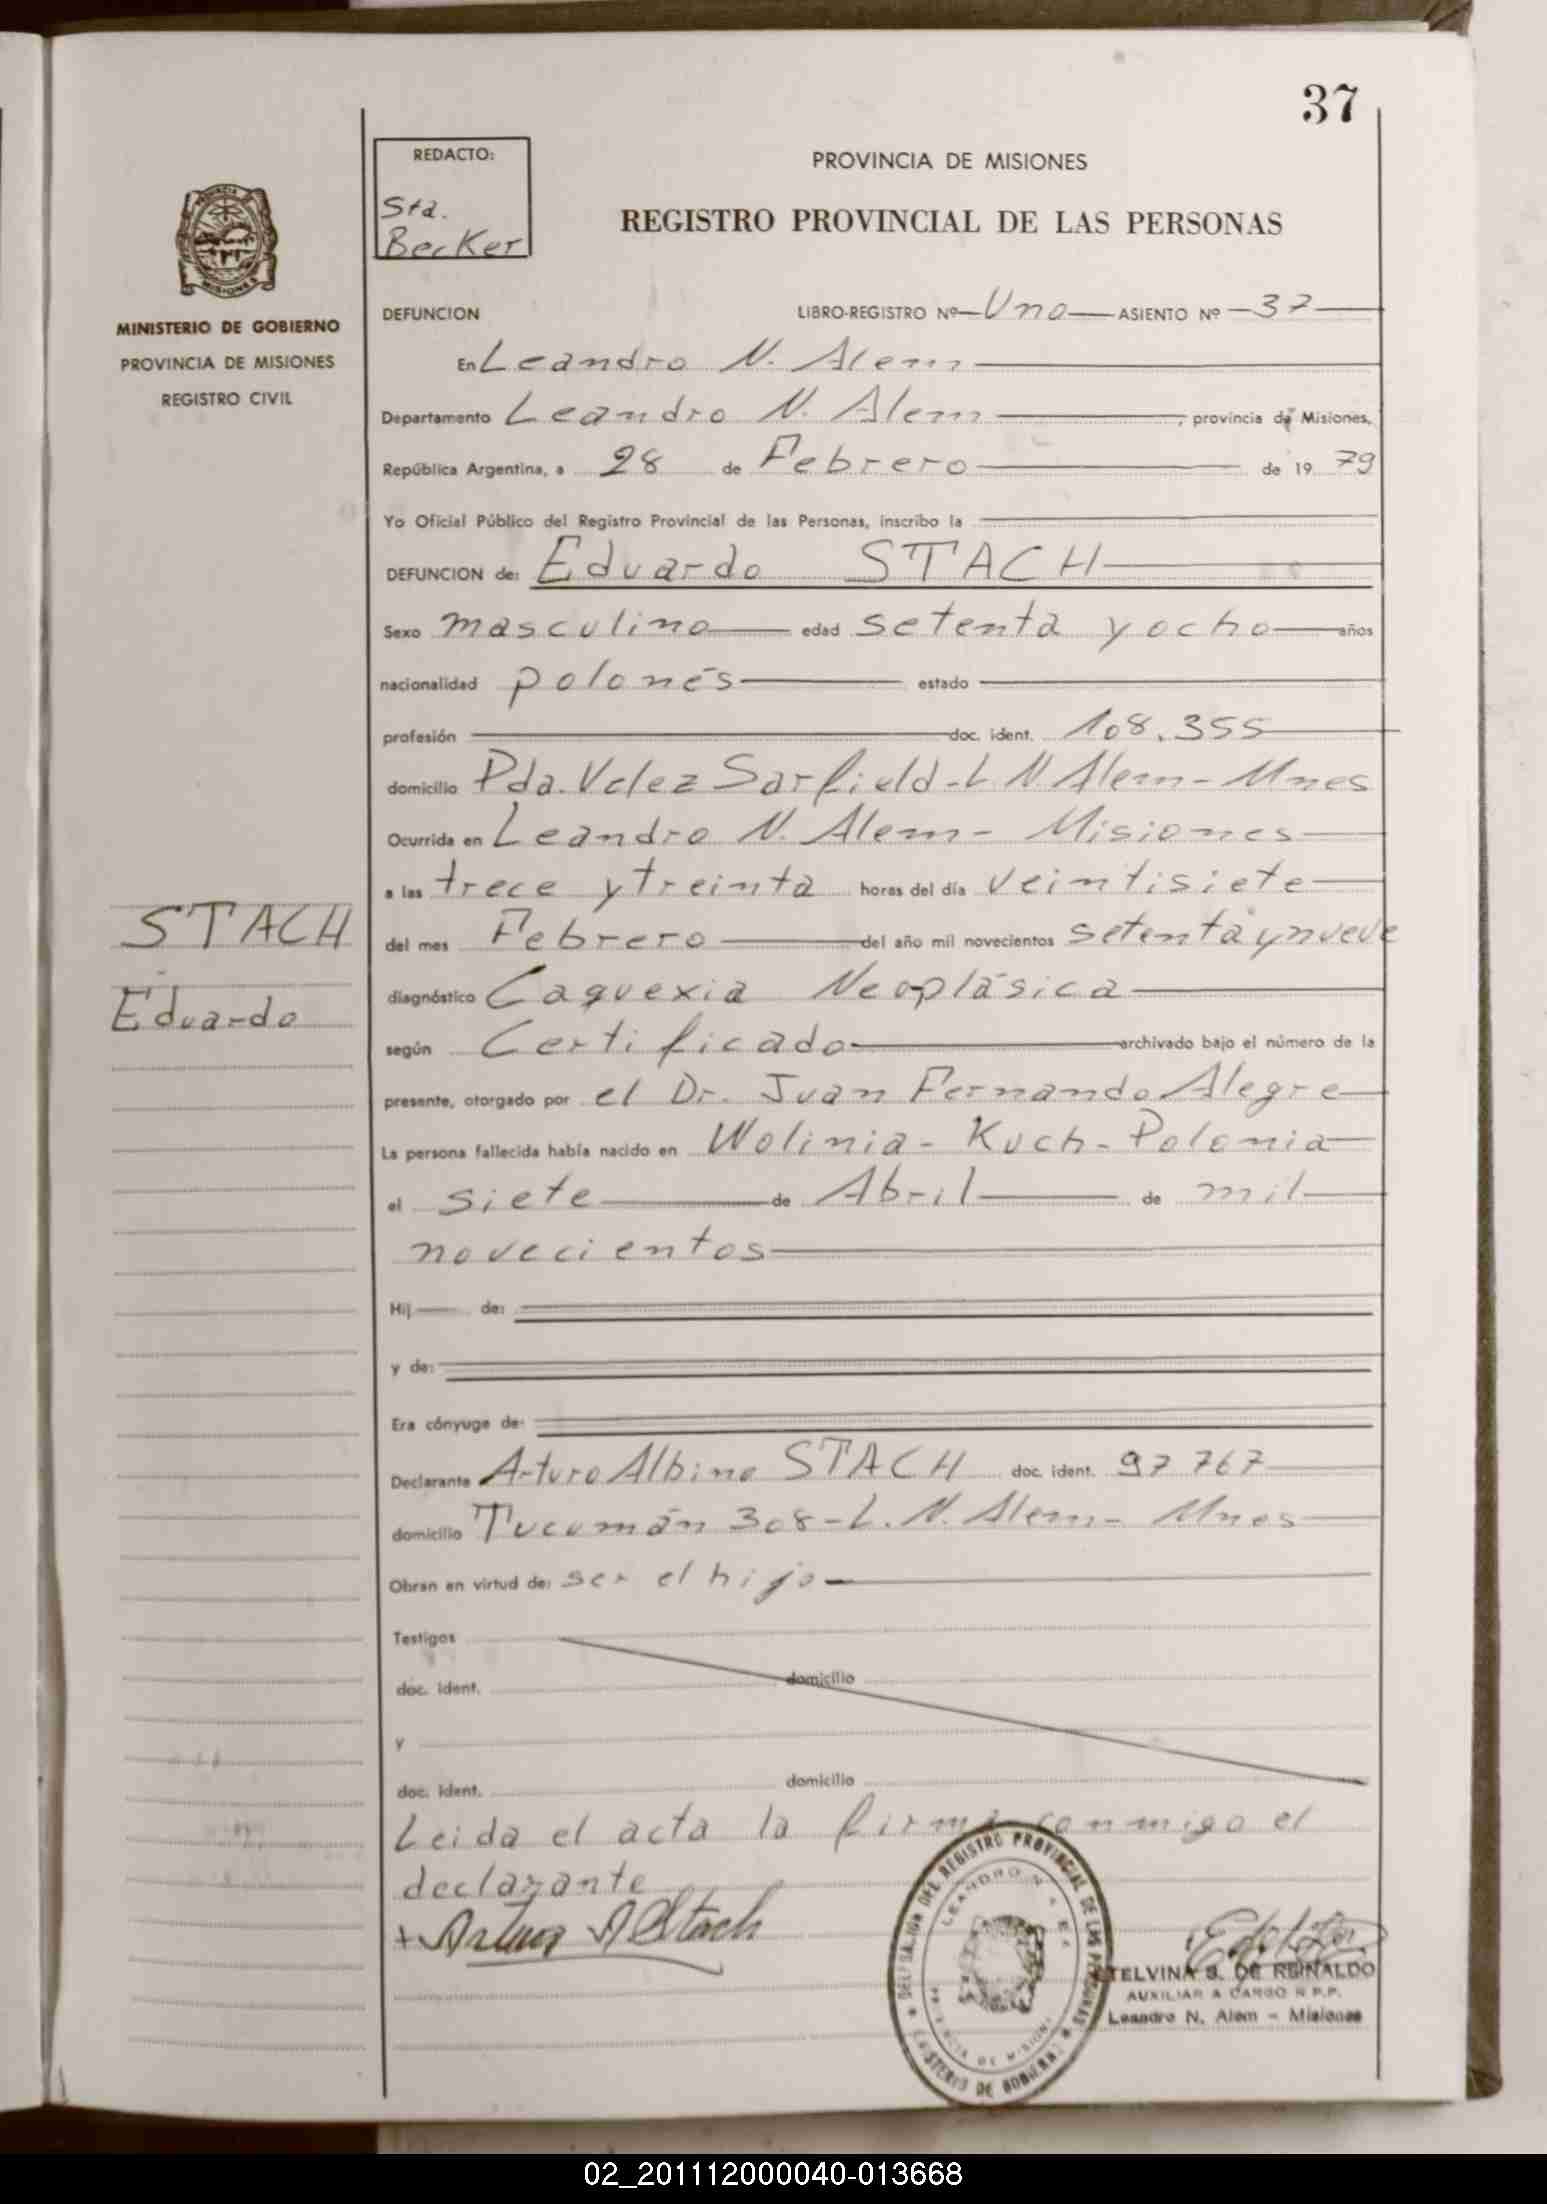 37
REDACTO:
Sta.
Becker
PROVINCIA DE MISIONES
REGISTRO PROVINCIAL DE LAS PERSONAS
PROVINCIA
MISIONES
MINISTERIO DE GOBIERNO
PROVINCIA DE MISIONES
REGISTRO CIVIL
DEFUNCION LIBRO-REGISTRO Nº Uno ASIENTO Nº 37
En Leandro N. Alem
Departamento Leandro N. Alem, provincia de Misiones,
República Argentina, a 28 de Febrero de 19 79
Yo Oficial Público del Registro Provincial de las Personas, inscribo la
DEFUNCION de: Eduardo STACH
Sexo masculino edad setenta y ocho años
nacionalidad polonés estado
profesión doc. ident. 108.355
domicilio Pda. Velez Sarfield - L. N. Alem - Mnes
Ocurrida en Leandro N. Alem - Misiones
a las trece y treinta horas del día veintisiete
del mes Febrero del año mil novecientos setenta y nueve
STACH
Eduardo
diagnóstico Caquexia Neoplásica
según Certificado archivado bajo el número de la
presente, otorgado por el Dr. Juan Fernando Alegre
La persona fallecida había nacido en Wolinia - Kuch - Polonia
el siete de Abril de mil
novecientos
Hij de:
y de:
Era cónyuge de:
Declarante Arturo Albino STACH doc. ident. 97 767
domicilio Tucumán 308 - L. N. Alem - Mnes
Obran en virtud de: ser el hijo
Testigos
doc. ident. domicilio
y
doc. ident. domicilio
Leida el acta la firma conmigo el
declarante
+ Arturo A Stach
DELEGACION DEL REGISTRO PROVINCIAL DE LAS PERSONAS
LEANDRO N. ALEM
PROVINCIA DE MISIONES
MINISTERIO DE GOBIERNO
ETELVINA S. DE REINALDO
AUXILIAR A CARGO R.P.P.
Leandro N. Alem - Misiones
02_201112000040-013668